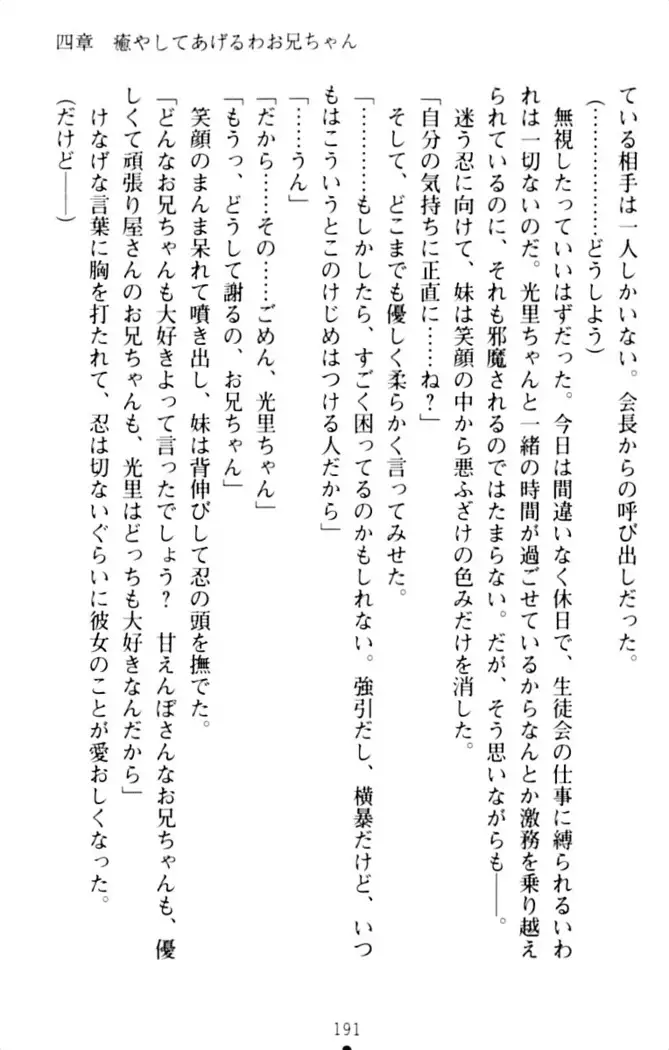 四章　癒やしてあげるわお兄ちゃん
ている相手は一人しかいない。会長からの呼び出しだった。
（………………どうしよう）
無視したっていいはずだった。今日は間違いなく休日で、生徒会の仕事に縛られるいわ
れは一切ないのだ。光里ちゃんと一緒の時間が過ごせているからなんとか激務を乗り越え
られているのに、それも邪魔されるのではたまらない。だが、そう思いながらも――。
迷う忍に向けて、妹は笑顔の中から悪ふざけの色みだけを消した。
「自分の気持ちに正直に……ね？」
そして、どこまでも優しく柔らかく言ってみせた。
「…………もしかしたら、すごく困ってるのかもしれない。強引だし、横暴だけど、いつ
もはこういうとこのけじめはつける人だから」
「……うん」
「だから……その……ごめん、光里ちゃん」
「もうっ、どうして謝るの、お兄ちゃん」
笑顔のまんま呆れて噴き出し、妹は背伸びして忍の頭を撫でた。
「どんなお兄ちゃんも大好きよって言ったでしょう？　甘えんぼさんなお兄ちゃんも、優
しくて頑張り屋さんのお兄ちゃんも、光里はどっちも大好きなんだから」
けなげな言葉に胸を打たれて、忍は切ないぐらいに彼女のことが愛おしくなった。
（だけど――）
191